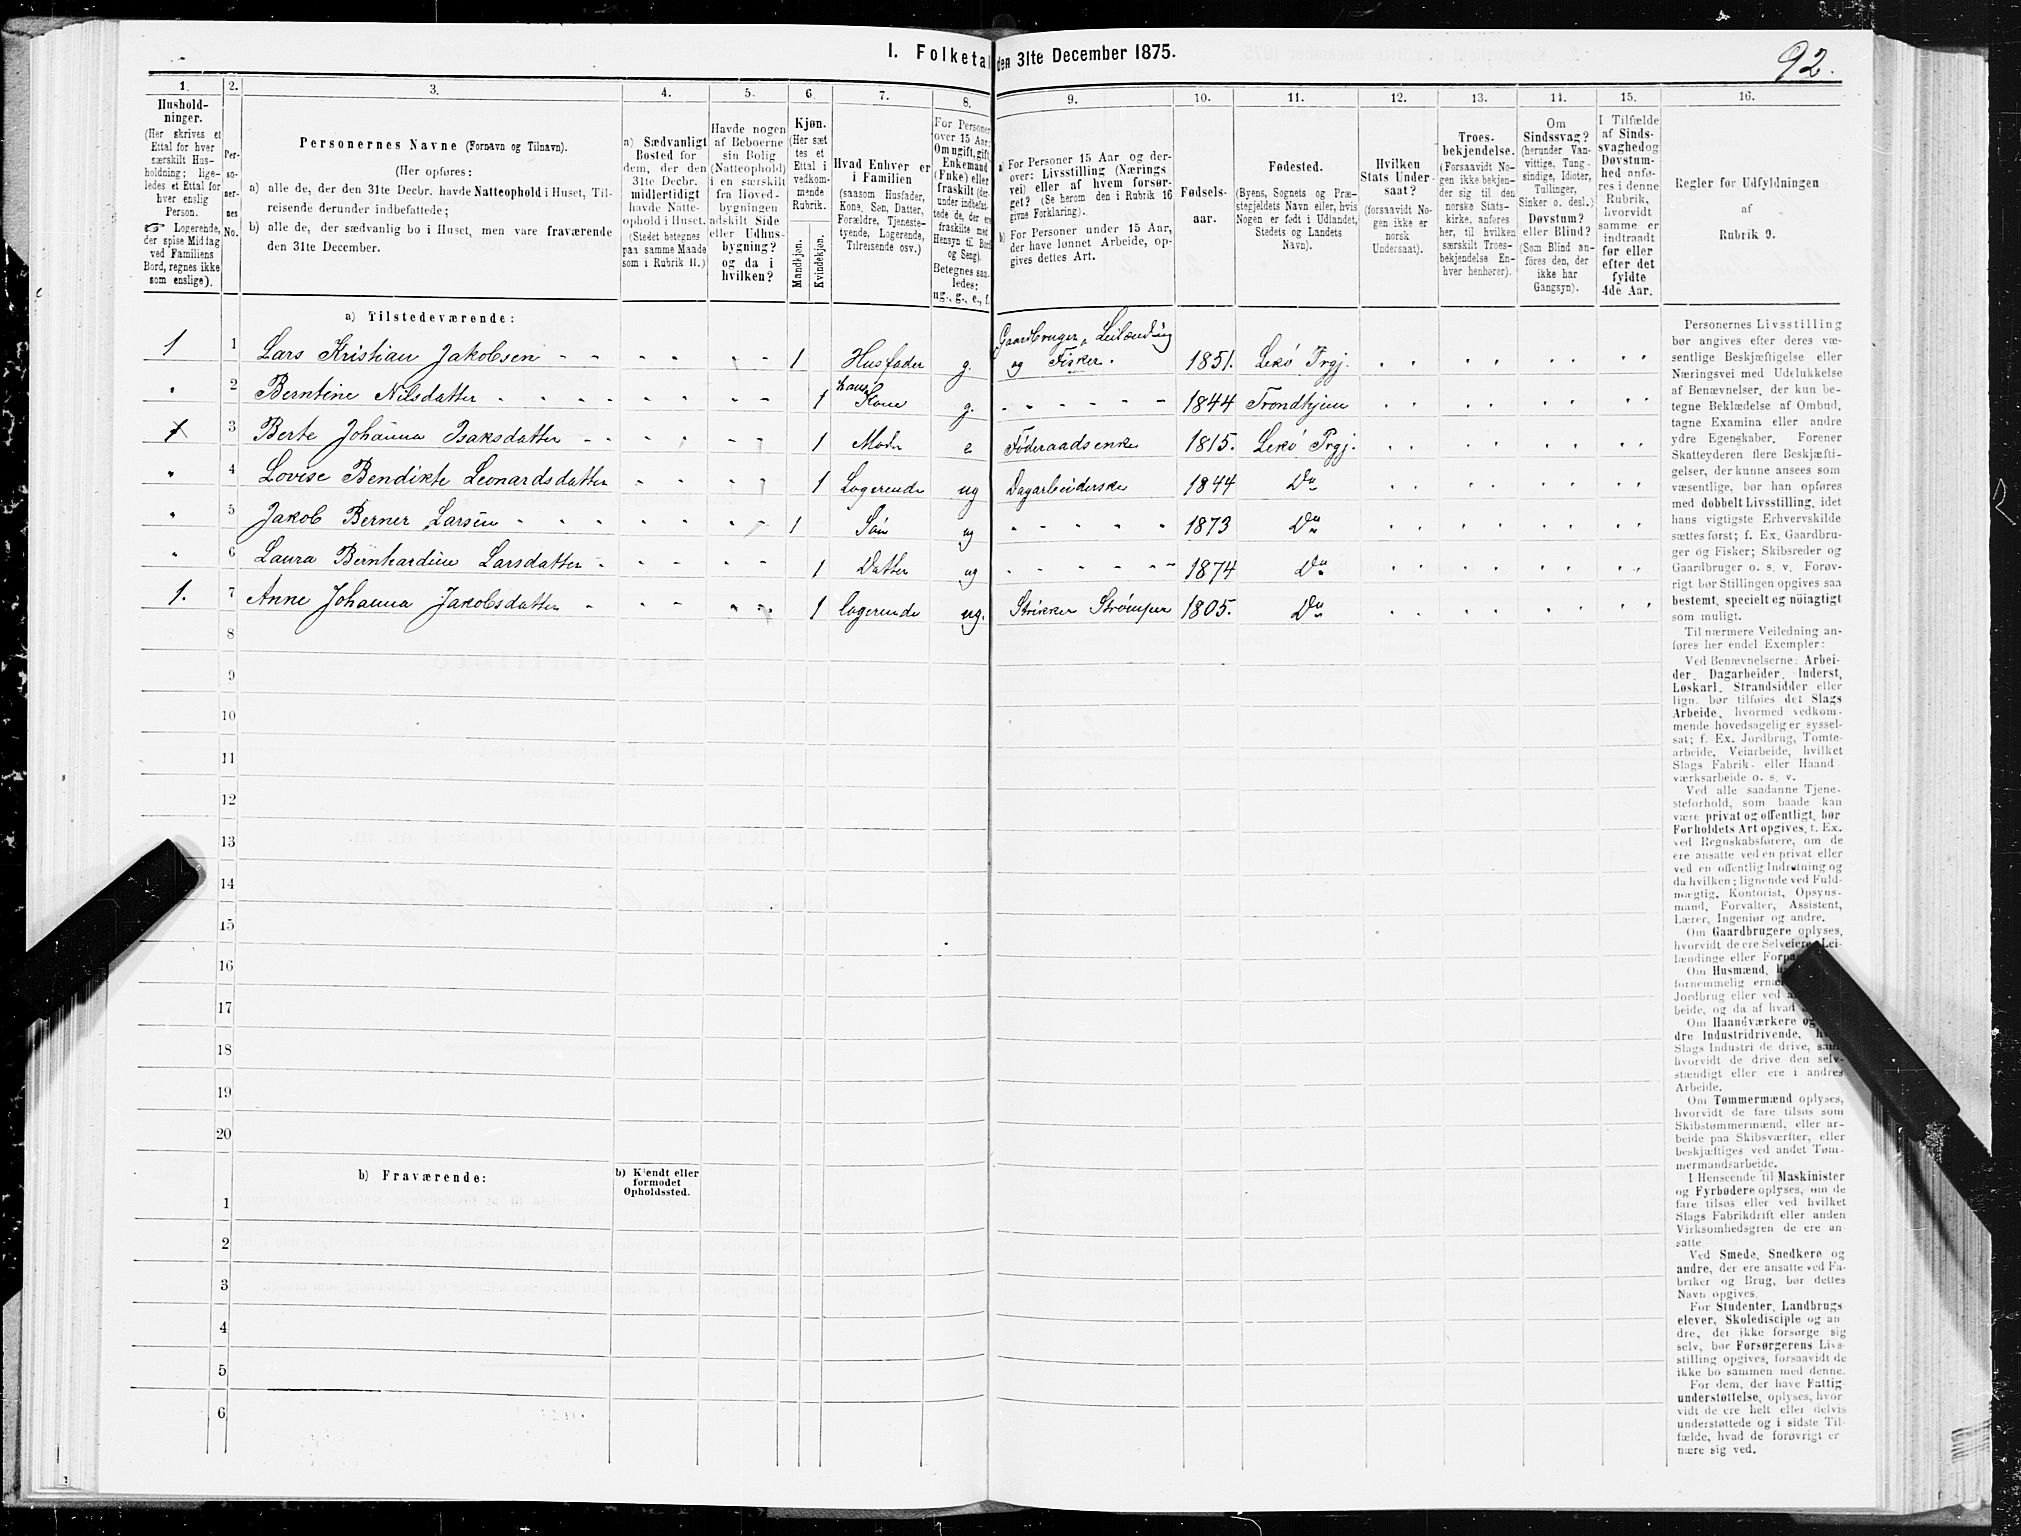 I. Folketal den 31te December 1875.
92.
1.
Hushold-
ninger.
(Her skrives et
Ettal for hver
særskilt Hus-
holdning; lige-
ledes et Ettal for
hver enslig
Person.
☞ Logerende,
der spise Middag
ved Familiens
Bord, regnes ikke
som enslige).
2.
Per-
so-
ner-
nes
No.
3.
Personernes Navne (Fornavn og Tilnavn).
(Her opføres:
a) alle de, der den 31te Decbr. havde Natteophold i Huset, Til-
reisende derunder indbefattede;
b) alle de, der sædvanlig bo i Huset, men vare fraværende
den 31te December.
4.
a) Sædvanligt
Bosted for
dem, der den
31te Decbr.
midlertidigt
havde Natte-
ophold i Huset.
(Stedet betegnes
paa samme Maade
som i Rubrik 11.)
5.
Havde nogen
af Beboerne
sin Bolig
(Natteophold)
i en særskilt
fra Hoved-
bygningen
adskilt Side
eller Udhus-
bygning?
og da i
hvilken?
6.
Kjøn.
(Her sæt
tes et
Ettal i
vedkom-
mende
Rubrik.
Mandkjøn.
Kvindekjøn.
7.
Hvad Enhver er
i Familien
(saasom Husfader,
Kone, Søn, Datter,
Forældre, Tjeneste-
tyende, Logerende,
Tilreisende osv.)
8.
For Personer
over 15 Aar:
Om ugift, gift,
Enkemand
(Enke) eller
fraskilt (der-
under indbefat-
tede de, der ere
fraskilte med
Hensyn til Bord
og Seng).
Betegnes saa-
ledes:
ug., g., e., f.
9.
a) For Personer 15 Aar og der-
over: Livsstilling (Nærings
vei) eller af hvem forsør-
get? (Se herom den i Rubrik 16
givne Forklaring).
b) For Personer under 15 Aar,
der have lønnet Arbeide, op-
gives dettes Art.
10.
Fødsels-
aar.
11.
Fødested.
(Byens, Sognets og Præ-
stegjeldets Navn eller, hvis
Nogen er født i Udlandet,
Stedets og Landets
Navn).
12.
Hvilken
Stats Under-
saat?
(forsaavidt No-
gen ikke er
norsk
Undersaat).
13.
Troes-
bekjendelse.
(Forsaavidt No-
gen ikke bekjen-
der sig til den
norske Stats-
kirke, anføres
her, til hvilken
særskilt Troes-
bekjendelse En-
hver henhører).
14.
Om
Sindssvag?
(herunder Van-
vittige, Tung-
sindige, Idioter,
Tullinger,
Sinker o. desl.)
Døvstum?
eller Blind?
(Som Blind an-
føres den, der
ikke har
Gangsyn).
15.
I Tilfælde
af Sinds-
svaghed og
Døvstum-
hed anfø-
res i denne
Rubrik,
hvorvidt
samme er
indtraadt
før eller
efter det
fyldte
4de Aar.
16.
Regler for Udfyldningen
af
Rubrik 9.
a) Tilstedeværende:
Gaardbruger, Leilænding
1 1 Lars Kristian Jakobsen 1 Husfader g. og Fisker. 1851. Lekø Prgj.
" 2 Berntine Nilsdatter 1 hans Kone g. 1844 Trondhjem
1 3 Berte Johanna Isaksdatter 1 Moder e. Føderaadsenke 1815. Lekø Prgj.
" 4 Lovise Bendikte Leonardsdatter 1 Logerende ug Dagarbeiderske 1844 Do
" 5 Jakob Berner Larsen 1 Søn ug 1873 Do
" 6 Laura Bernhardine Larsdatter 1 Datter ug 1874 Do
1. 7 Anne Johanna Jakobsdatter 1 logerende ug. Strikker Strømper 1805. Do
8
9
10
11
12
13
14
15
16
17
18
19
20
b) Fraværende:
b) Kjendt eller
formodet
Opholdssted.
1
2
3
4
5
6
Personernes Livsstilling
bør angives efter deres væ-
sentlige Beskjæftigelse eller
Næringsvei med Udelukkelse
af Benævnelser, der kun be-
tegne Beklædelse af Ombud,
tagne Examina eller andre
ydre Egenskaber. Forener
Skatteyderen flere Beskjæfti-
gelser, der kunne ansees som
væsentlige, bør han opføres
med dobbelt Livsstilling, idet
hans vigtigste Erhvervskilde
sættes først; f. Ex. Gaardbru-
ger og Fisker; Skibsreder og
Gaardbruger o. s. v. Forøv-
rigt bør Stillingen opgives saa
bestemt, specielt og nöiagtigt
som muligt.
Til nærmere Veiledning an-
føres her endel Exempler:
Ved Benævnelserne: Arbei-
der, Dagarbeider, Inderst,
Løskarl, Strandsidder eller
lign. bør tilføies det Slags
Arbeide, hvormed vedkom-
mende hovedsagelig er syssel-
sat; f. Ex. Jordbrug, Tomte-
arbeide, Veiarbeide, hvilket
Slags Fabrik- eller Haand
værksarbeide o. s. v.
Ved alle saadanne Tjene-
steforhold, som baade kan
være privat og offentligt, bør
Forholdets Art opgives, f. Ex.
ved Regnskabsførere, om de
ere ansatte ved en privat eller
ved en offentlig Indretning og
da hvilken; lignende ved Fuld-
mægtig, Kontorist, Opsyns-
mand, Forvalter, Assistent,
Lærer, Ingeniør og andre.
Om Gaardbrugere oplyses,
hvorvidt de ere Selveiere, Lei-
lændinge eller
Om Husmænd,
fornemmelig
Jordbrug eller ved
beide, og da af hvad
Om Haandværkere og
dre Industridrivende,
Slags Industri de drive, sam
hvorvidt de drive den selv-
stændigt eller ere i andres
Arbeide.
Om Tømmermænd oplyses,
hvorvidt de fare tilsøs som
Skibstømmermænd, eller ar-
beide paa Skibsværfter, eller
beskjæftiges ved andet Tøm-
mermandsarbeide.
I Henseende til Maskinister
og Fyrbødere oplyses, om de
fare tilsøs eller ved hvilket
Slags Fabrikdrift eller anden
Virksomhedsgren de ere an-
satte
Ved Smede, Snedkere og
andre, der ere ansatte ved Fa-
briker og Brug, bør dettes
Navn opgives.
For Studenter, Landbrugs
elever, Skoledisciple og an
dre, der ikke forsørge sig
selv, bør Forsørgerens Livs-
stilling opgives, forsaavidt de
ikke bo sammen med denne.
For dem, der have Fattig
understøttelse, oplyses, hvor
vidt de ere helt eller delvis
understøttede og i sidste Til-
fælde, hvad de forøvrigt er
nære sig ved.